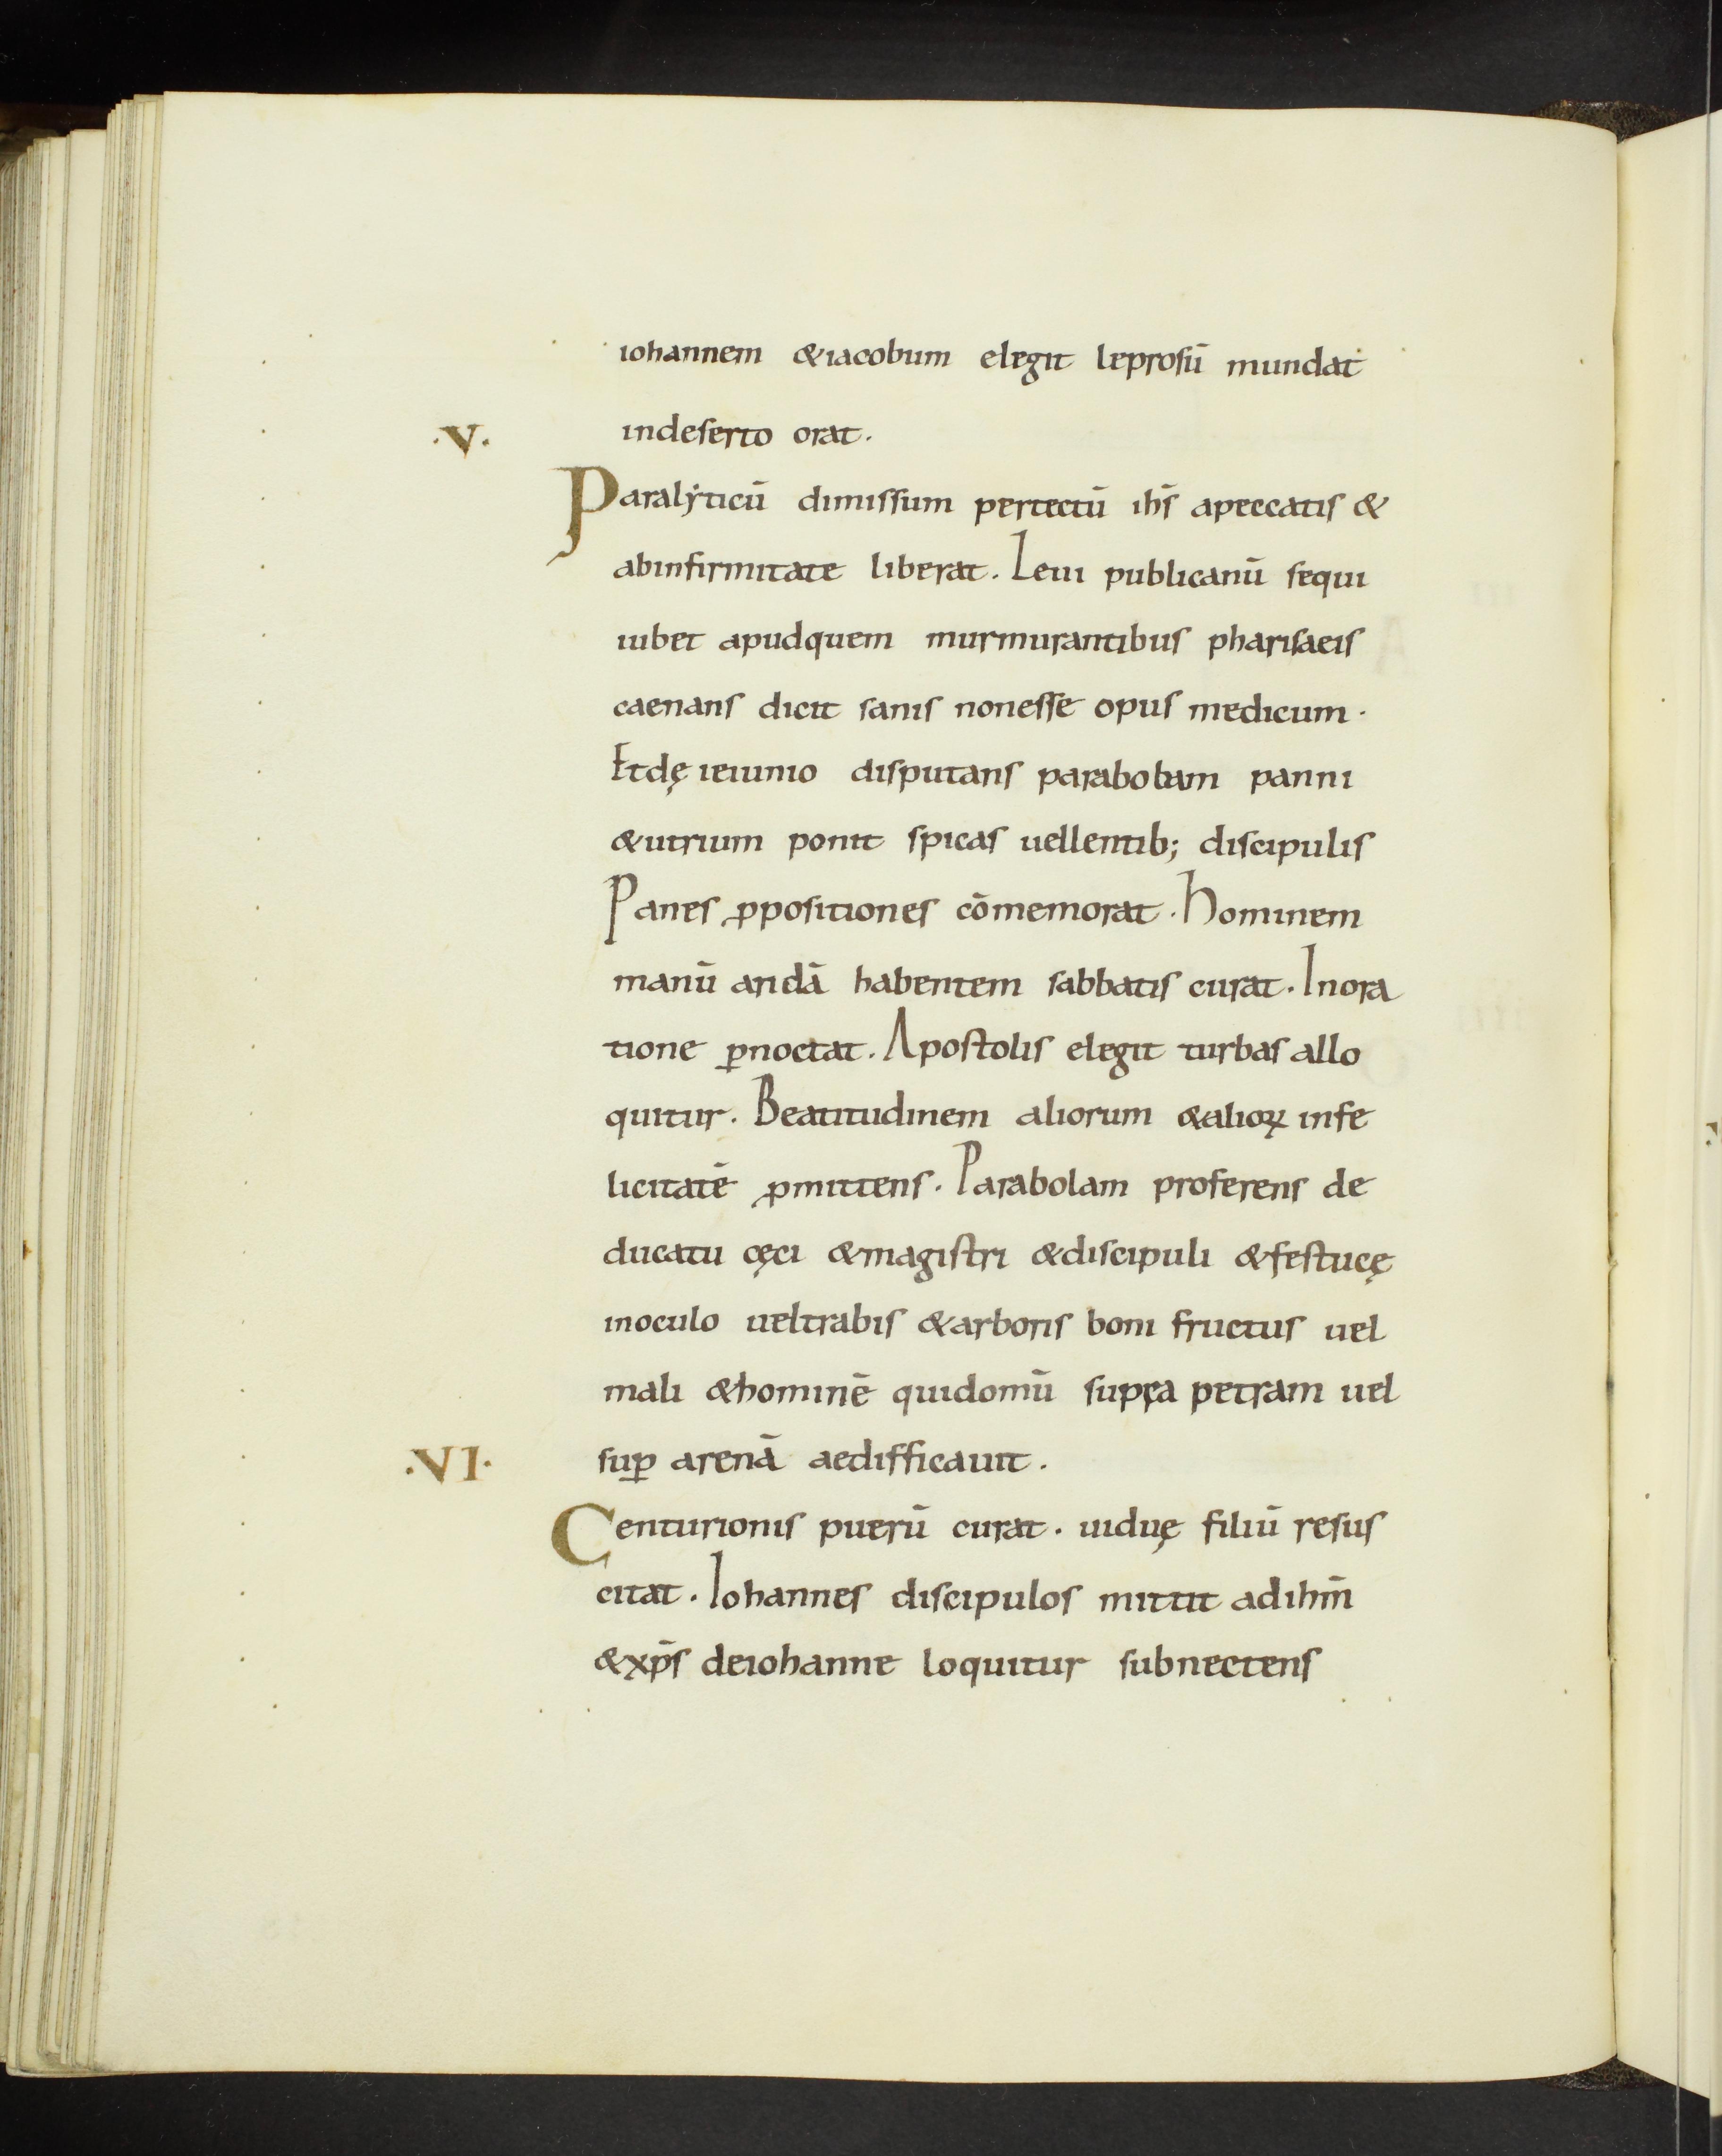 iohannem &iacobum elegit leprosū mundat
.V. indeserto orat.
Paralẏticū dimissum pertectū ihs̄ apeccatis &
abinfirmitate liberat. Leui publicanū sequi
iubet apudquem murmurantibus pharisaeis
caenans dicit sanis nonesse opus medicum.
Etdę ieiunio disputans parabolam panni
&utrium ponit spicas uellentib; discipulis
Panes ꝓpositiones cōmemorat. Hominem
manū aridā habentem sabbatis curat. Inora
tione ꝑnoctat. Apostolis elegit turbas allo
quitur. Beatitudinem aliorum &alioꝝ infe
licitatē ꝓmittens. Parabolam proferens de
ducatu cęci &magistri &discipuli &festucę
inoculo ueltrabis &arboris boni fructus uel
mali &hominē quidomū supra petram uel
.VI. suꝑ arenā aedifficauit.
Centurionis puerū curat. uiduę filiū resus
citat. Iohannes discipulos mittit adihm̄
&xp̄s deiohanne loquitur subnectens